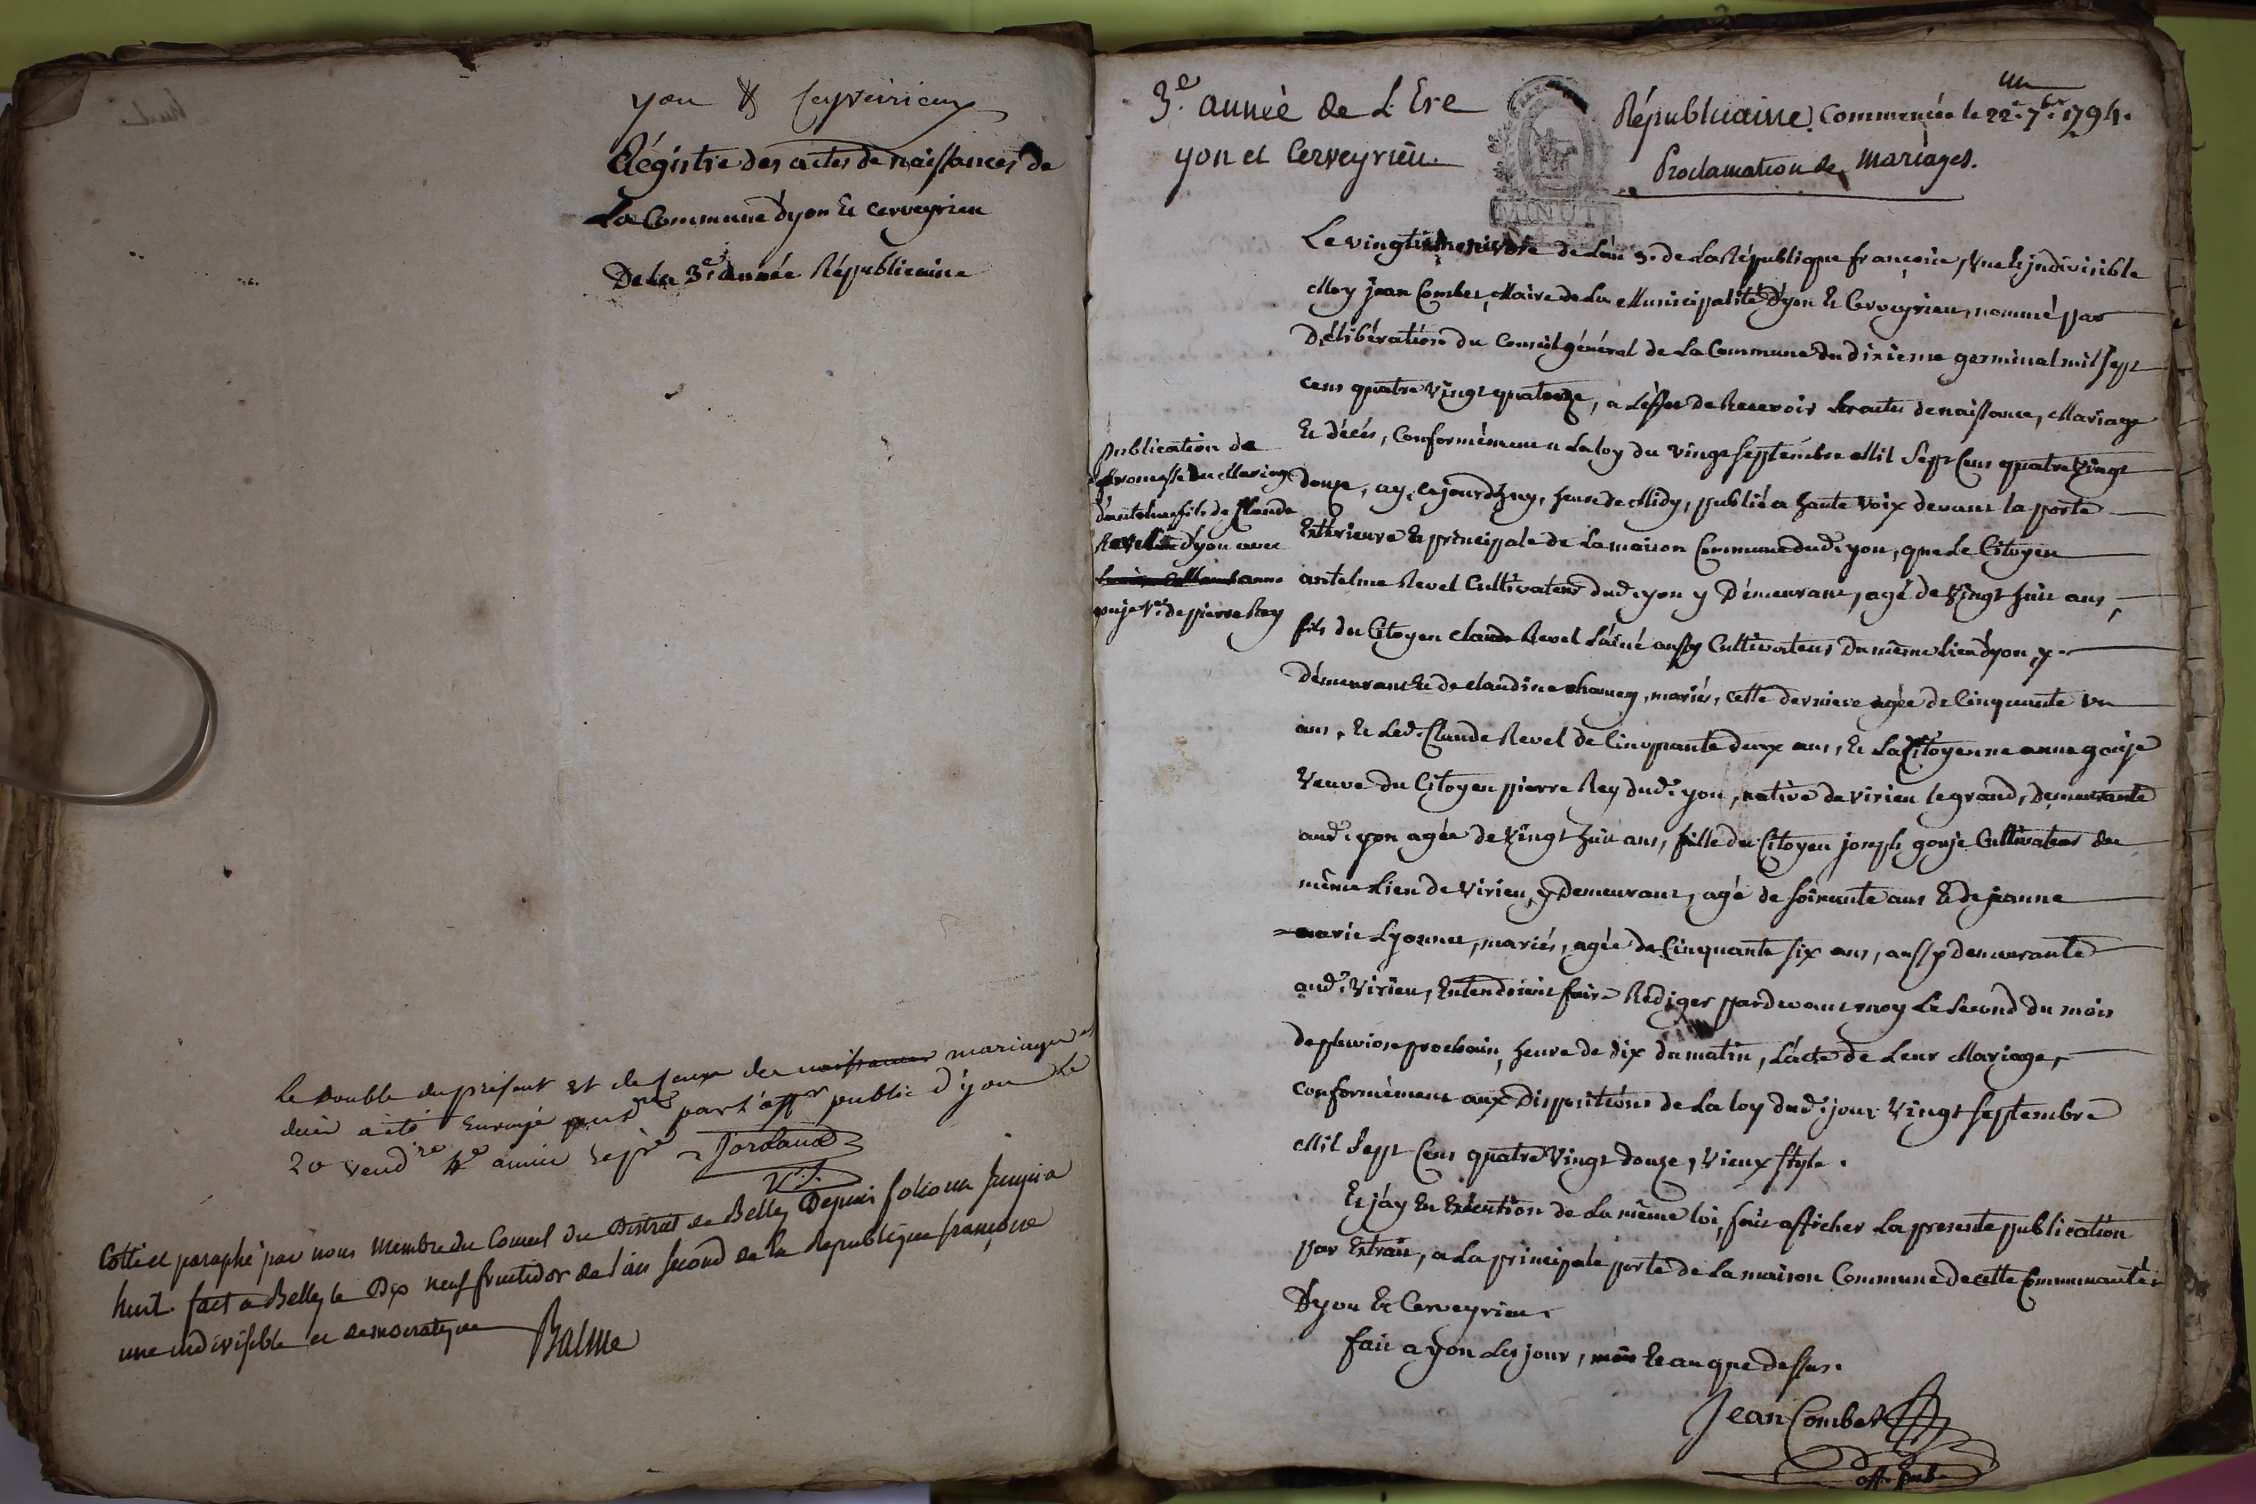 yon & Cerveirieux
Régistre des actes de naissances de
La Commune d'yon Et Cerveyrieu
De la 3e. année Républicaine
Le double du présent et de ceux des naissances mariages et
décès a été Envoyé par l'offr public d'yon Le
20 vendre 4e année Repe Jordand
V.S.
Cotté et paraphé par nous Membre du Conseil du District de Belley Depuis folio un jusqu'a
huit. fait a Belley le Dix neuf fructidor de l'an second de la Republique françoise
une indivisible et democratique Balme
un
3e. année de L'Ere Républicaine Commencée le 22e. 7bre. 1794.
yon et Cerveyrieu. Proclamation de Mariages.
MINUTE
Le vingt nivôse de L'an 3e. de La République françoise, Une Et jndivisible
Moy jean Combet, Maire de La Municipalité D'yon Et Cerveyrieu, nommé par
Délibération du Conseil général de La Commune du dixieme germinal mil sept
cens quatre Vingt quatorze, a L'effet de Recevoir Les actes de naissance, Mariage
Et décès, Conformément a La loy du vingt septembre Mil Sept Cens quatre Vingt
Publication de
promesse de Mariage
d'antelme fils de Claude
Revel d'yon avec
anne
gouje Ve. de pierre Rey
douze, ay, cejourd'huy, heure de Midy, publié a haute voix devant la porte
Extérieure Et principale de La maison Commune dud. yon, que Le Citoyen
antelme Revel Cultivateur dud. yon y Démeurant, agé de Vingt huit ans,
fils du Citoyen Claude Revel L'ainé aussy Cultivateur du même Lieu d'yon, y
Démeurant Et de Claudine Chamey, mariés, cette derniere agée de Cinquante Un
ans, Et Led. Claude Revel de Cinquante deux ans, Et La Citoyenne anne gouje
Veuve du Citoyen pierre Rey dud. yon, native de Virieu le grand, Demeurante
aud. yon agée de Vingt huit ans, fille du Citoyen joseph gouje Cultivateur du
même Lieu de Virieu, y Demeurant, agé de soixante ans Et de jeanne
marie Lyonnet, mariés, agée de Cinquante six ans, aussy demeurante
aud. Virieu, Entendoient faire Rédiger pardevant moy Le Second du mois
de pluviose prochain, heure de dix du matin, L'acte de Leur Mariage,
conformément aux Dispositions de La loy dud. jour Vingt septembre
Mil Sept Cens quatre Vingt douze, Vieux style.
Et j'ay En Exécution de La même loi, fait afficher La presente publication
par Extrait, a La principale porte de La maison Commune de cette Communauté
D'yon Et Cerveyrieu.
fait a yon Les jour, mois Et an que dessus.
Jean Combet
off. pub.